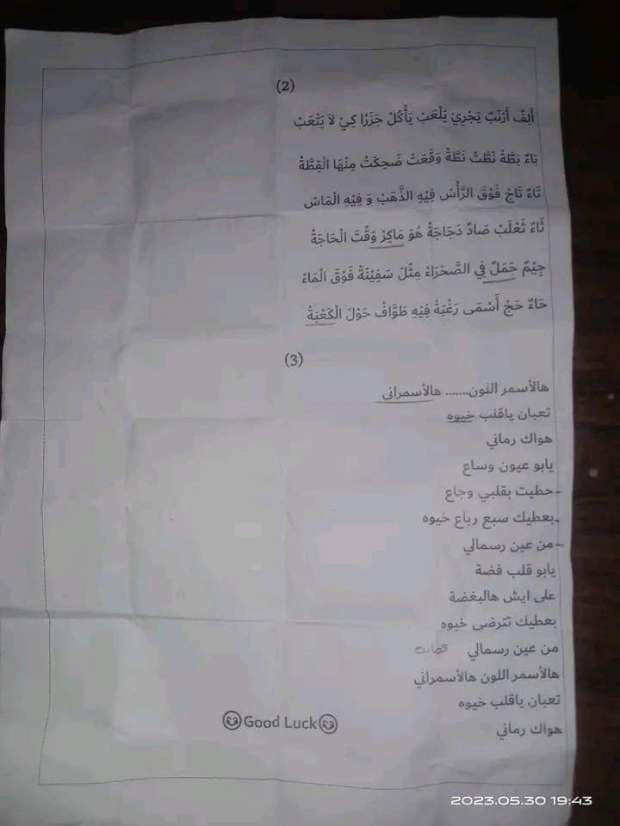 (2)
أَلِفٌ أَرْنَبٌ يَجْرِيْ يَلْعَبْ يَأْكُلُ جَزَرًا كِيْ لاَ يَتْعَبْ
بَاءٌ بَطَّةْ نَطَّتْ نَطَّةْ وَقَعَتْ ضَحِكَتْ مِنْهَا الْقِطَّةْ
تَاءٌ تَاجْ فَوْقَ الرَّأْسْ فِيْهِ الذَّهَبْ وَ فِيْهِ الْمَاسْ
ثَاءٌ ثَعْلَبْ صَادَ دَجَاجَةْ هُوَ مَاكِرْ وَقْتَ الْحَاجَةْ
جِيْمٌ جَمَلٌ فِي الصَّحْرَاءْ مِثْلَ سَفِيْنَةْ فَوْقَ الْمَاءْ
حَاءٌ حَجْ أَسْمَى رَغْبَةْ فِيْهِ طَوَّافْ حَوْلَ الْكَعْبَةْ
(3)
هالأسمر اللون....... هالأسمراني
تعبان ياقلب خيوه
هواك رماني
يابو عيون وساع
حطيت بقلبي وجاع
بعطيك سبع رباع خيوه
من عين رسمالي
يابو قلب فضة
على ايش هالبغضة
بعطيك تترضى خيوه
من عين رسمالي
هالأسمر اللون هالأسمراني
تعبان ياقلب خيوه
هواك رماني
Good Luck
2023.05.30 19:43